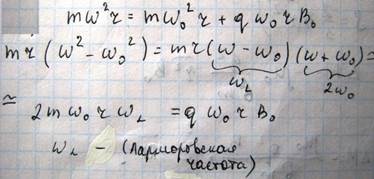 mω²r = mω₀²r + qω₀rB₀
mr(ω² - ω₀²) = mr(ω - ω₀)(ω + ω₀) =
ω_L 2ω₀
≃ 2mω₀rω_L = qω₀rB₀
ω_L - (Ларморовская
частота)